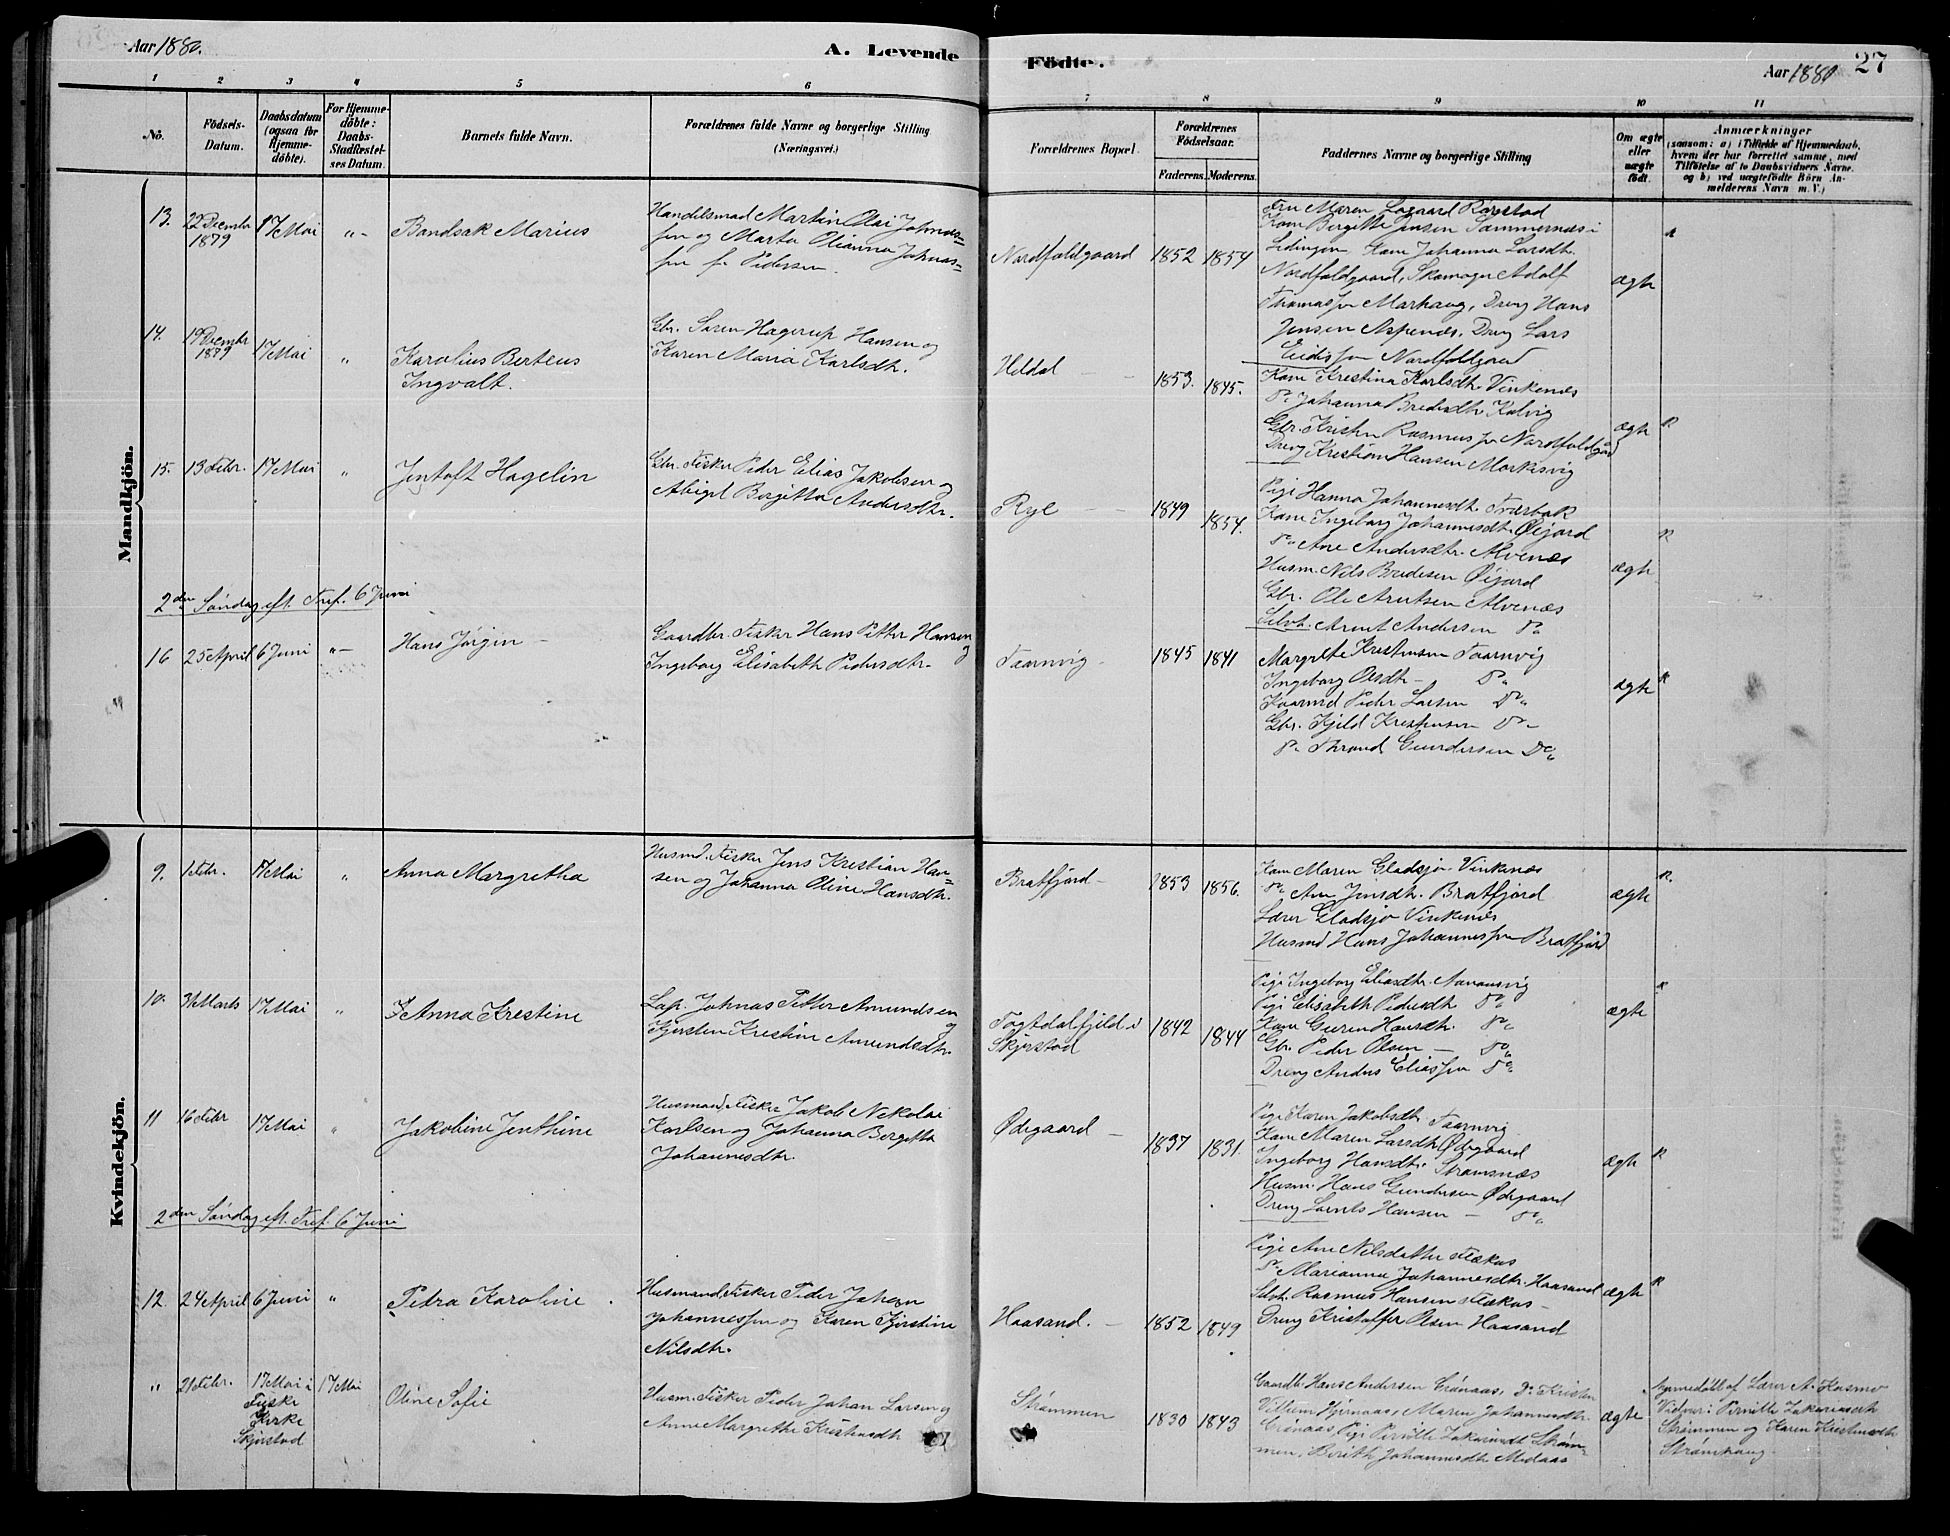 Aar 1880.
A. Levende
Födte.
Aar 1880
27
1 2 3 4 5 6 7 8 9 10 11
No.
Födsels-
Datum.
Daabsdatum
(ogsaa for
Hjemme-
döbte).
For Hjemme-
döbte:
Daabs-
Stadfæstel-
ses Datum.
Barnets fulde Navn.
Forældrenes fulde Navne og borgerlige Stilling
(Næringsvei.)
Forældrenes Bopæl.
Forældrenes
Födselsaar.
Faderens. Moderens.
Faddernes Navne og borgerlige Stilling
Om ægte
eller
uægte
födt.
Anmærkninger
(saasom: a) i Tilfælde af Hjemmedaab,
hvem der har forrettet samme, med
Tilföielse af to Daabsvidners Navne.
og b) ved uægtefödte Börn An-
melderens Navn m. V.)
Mandkjön.
13. 22 Decembr 1879 17 Mai "- Bandsak Marius
Handelsmad Martin Olai Johnas=
sen og Marta Olianna Johnas=
sen f. Pedersen.
Nordfoldgaard 1852 1854
Fru Maren Røsestad
Kone Birgitte Jensen Sommernæs i
Lødingen Kone Johanna Larsdtr.
Nordfoldgaard, Skomager Adolf
Thomassen Markaug, Dreng Hans
Jensen Aspenæs. Dreng Lars
Eidissen Nordfoldgaard
ægte
14. 19 Decembr 1879 17 Mai " Karolius Berteus
Ingvalt.
Gbr. Søren Hagerup Hansen og
Karen Maria Karlsdtr.
Heldal 1853. 1845.
Kone Krestina Karlsdtr. Vinkenæs
Do Johanna Bredesdtr. Kalvig
Gbr. Kristen Rasmussen Nordfoldgård
Dreng Krestian Hansen Morkesvig
ægte
15. 13 Febr. 17 Mai " Jentoft Hagelin
Gbr. Fisker Peder Elias Jakobsen og
Abigel Bergitta Andersdtr.
Ryel 1849 1854.
Pige Hanna Johannesdtr. Tværbak
Kone Ingeborg Johannesdtr. Øijord
Do Ane Andersdtr. Alvenæs
Husm. Nils Bredesen Øijord
Gbr. Ole Arntsen Alvenæs
Selvst. Arent Andersen Do
ægte
2den Søndag eft. Tref. 6 Juni
16 25 April 6 Juni "- Hans Jørgin -
Gaardbr. Fisker Hans Petter Hansen og
Ingeborg Elisabeth Pedersdtr.
Taarnvig - 1845 1841
Margrete Krestensen Taarnvig
Ingeborg Olsdtr - Do
Peder Larsen Do
Gbr. Kjeld Krestensen Do
Do Thrond Gundersen Do
ægte
Kvindekjön.
9. 1 Febr. 17 Mai " Anna Margretha
Husmd. Fisker Jens Krestian Han=
sen og Johanna Oline Hansdtr.
Bratfjord - 1853 1856.
Kone Maren Gladsjø Vinkenæs
Do Ane Jensdtr. Bratfjord
Lærer Gladsjø Vinkenæs
Husmd Hans Johannessen Bratfjord
ægte
10. 31 Marts 17 Mai " Anna Krestine
Lap. Johnas Petter Amundsen og
Kjersten Krestine Amundsdtr.
Fogtdalfjeld i
Skjerstad 1842 1844
Pige Ingeborg Eliasdtr.
Pige Elisabeth Pedersdtr Do
Kone Hansdtr. Do
Gbr. Peder Olsen - Do
Dreng Anders Eliassen Do
ægte
11 16 Febr 17 Mai " Jakobine Jenthine
Husmand, Fisker Jakob Nekolai
Karlsen og Johanna Bergitta
Johannesdtr.
Ødegaard - 1837 1831.
Pige Karen Jakobsdtr. Taarnvig
Kone Maren Larsdtr. Ødegaard
Ingeborg Hansdtr. Strømsnæs
Husm. Hans Gundersen Ødegaard
Dreng Lorents Hansen - Do
ægte
2den Søndag eft. Tref. 6 Juni
12 24 April 6 Juni " Pedra Karoline
Husmand, Fisker Peder Johan
Johannessen og Karen Kjerstine
Nilsdtr.
Haasand. - 1852 1849
Pige Ane Nilsdatter
Do Marianna Johannesdtr. Haasand
Selvst. Rasmus Hansen
Dreng Kristoffer Olsen Haasand
ægte
" 21 Febr. 17 Mai i
Fjeske
Kirke
Skjerstad
17 Mai Oline Sofie
Husm. Fisker Peder Johan Larsen og
Anne Margrethe Kristensdtr
Strømmen 1830 1843
Gaardb. Hans Andersen Grønaas, Do Kristen
Villum Hjernaas, Maren Johannesdtr.
Grønaas, Pige Pernille Zakariasdt Strøm=
men, Berith Johannesdtr Medaas
ægte
Hjemmedøbt af Lærer A. Kosmo
Vidner: Pernille Zakariasdtr
Strømmen og Karen Kristensdtr
Strømhaug.